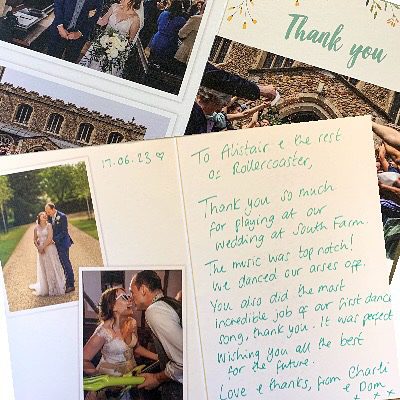 Thank you
17.06.23 ♡
To Alistair & the rest
of Rollercoaster,
Thank you so much
for playing at our
wedding at South Farm.
The music was top notch!
We danced our arses off.
You also did the most
incredible job of our first dance
song, thank you. It was perfect
Wishing you all the best
for the future.
Love & thanks, from Charli
& Dom
x x x